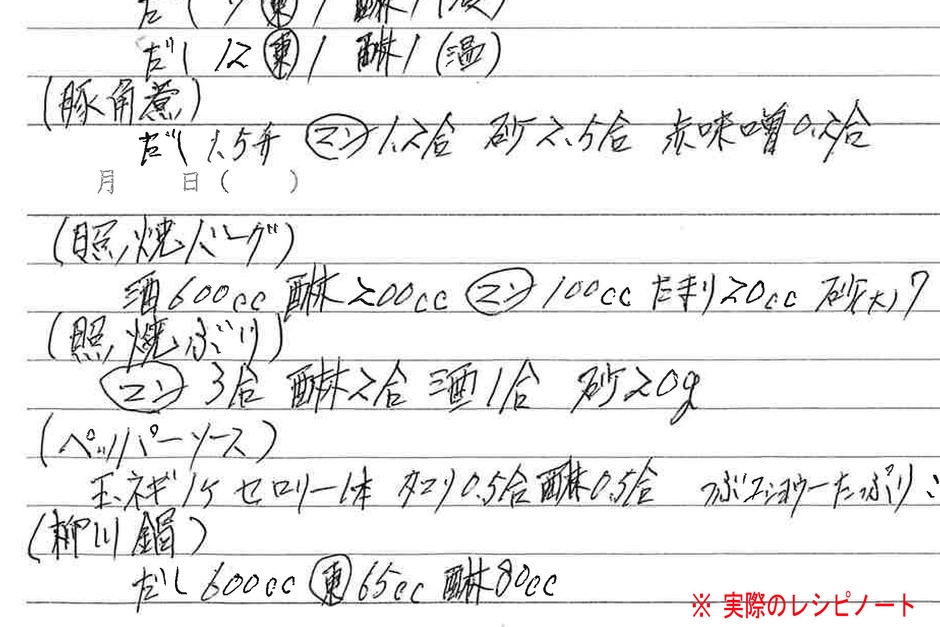 だし 12 ㊞東 1 醂1 (温)
(豚角煮)
だし 1.5升 マン 1.2合 砂2.5合 赤味噌0.2合
月 日( )
(照焼バーグ)
酒600cc 醂200cc マン 100cc たまり20cc 砂大1
(照焼ぶり)
マン 3合 醂2合 酒1合 砂20g
(ペッパーソース)
玉ネギ1ケ セロリー1本 タマリ0.5合 醂0.5合 つぶコショウーたっぷり
(柳川鍋)
だし600cc 東 65cc 醂80cc
※ 実際のレシピノート